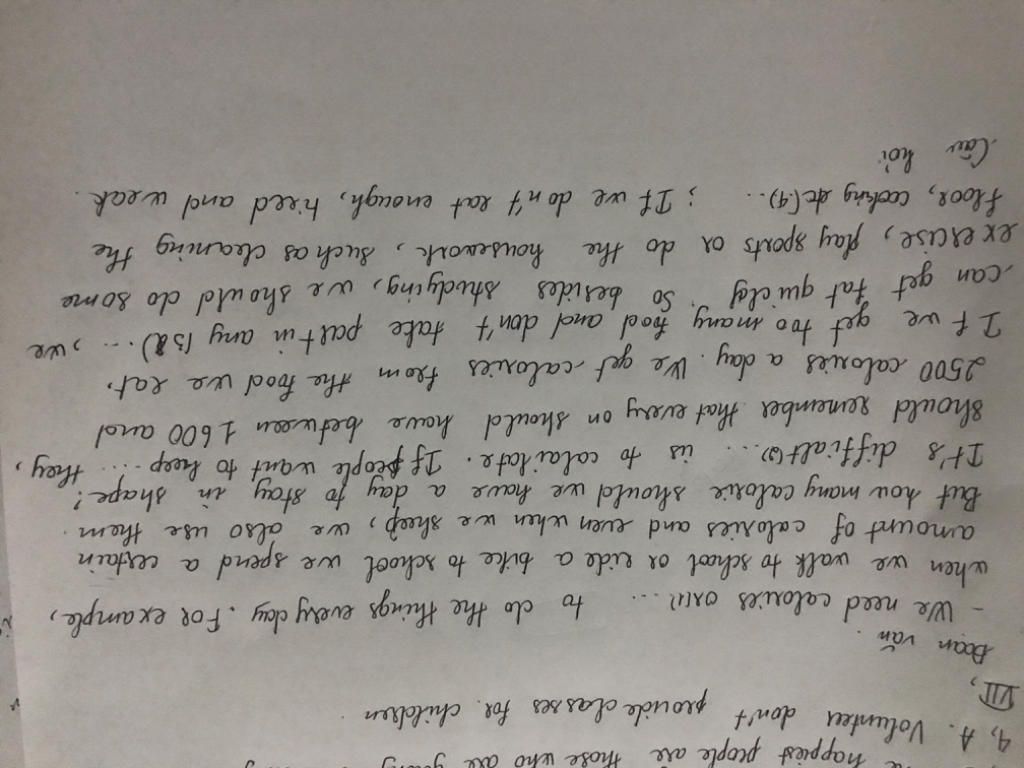 happiest people are those who are
4, A. Volunteer don't provide classes for children.
VII,
Đoạn văn.
- We need calories or(1) .... to do the things every day. For example,
when we walk to school or ride a bike to school we spend a certain
amount of calories and even when we sleep, we also use them.
But how many calorie should we have a day to stay in shape?
It's difficalt(2) ... is to calculate. If people want to keep ...., they,
should remember that every on should have between 1600 and
2500 calories a day. We get calories from the food we eat.
If we get too many food and don't take part in any (3) ..., we
can get fat quickly. So besides studying, we should do some
exercise, play sports or do the housework, such as cleaning the
floor, cooking etc(4)... ; If we don't eat enough, tired and weak.
Câu hỏi